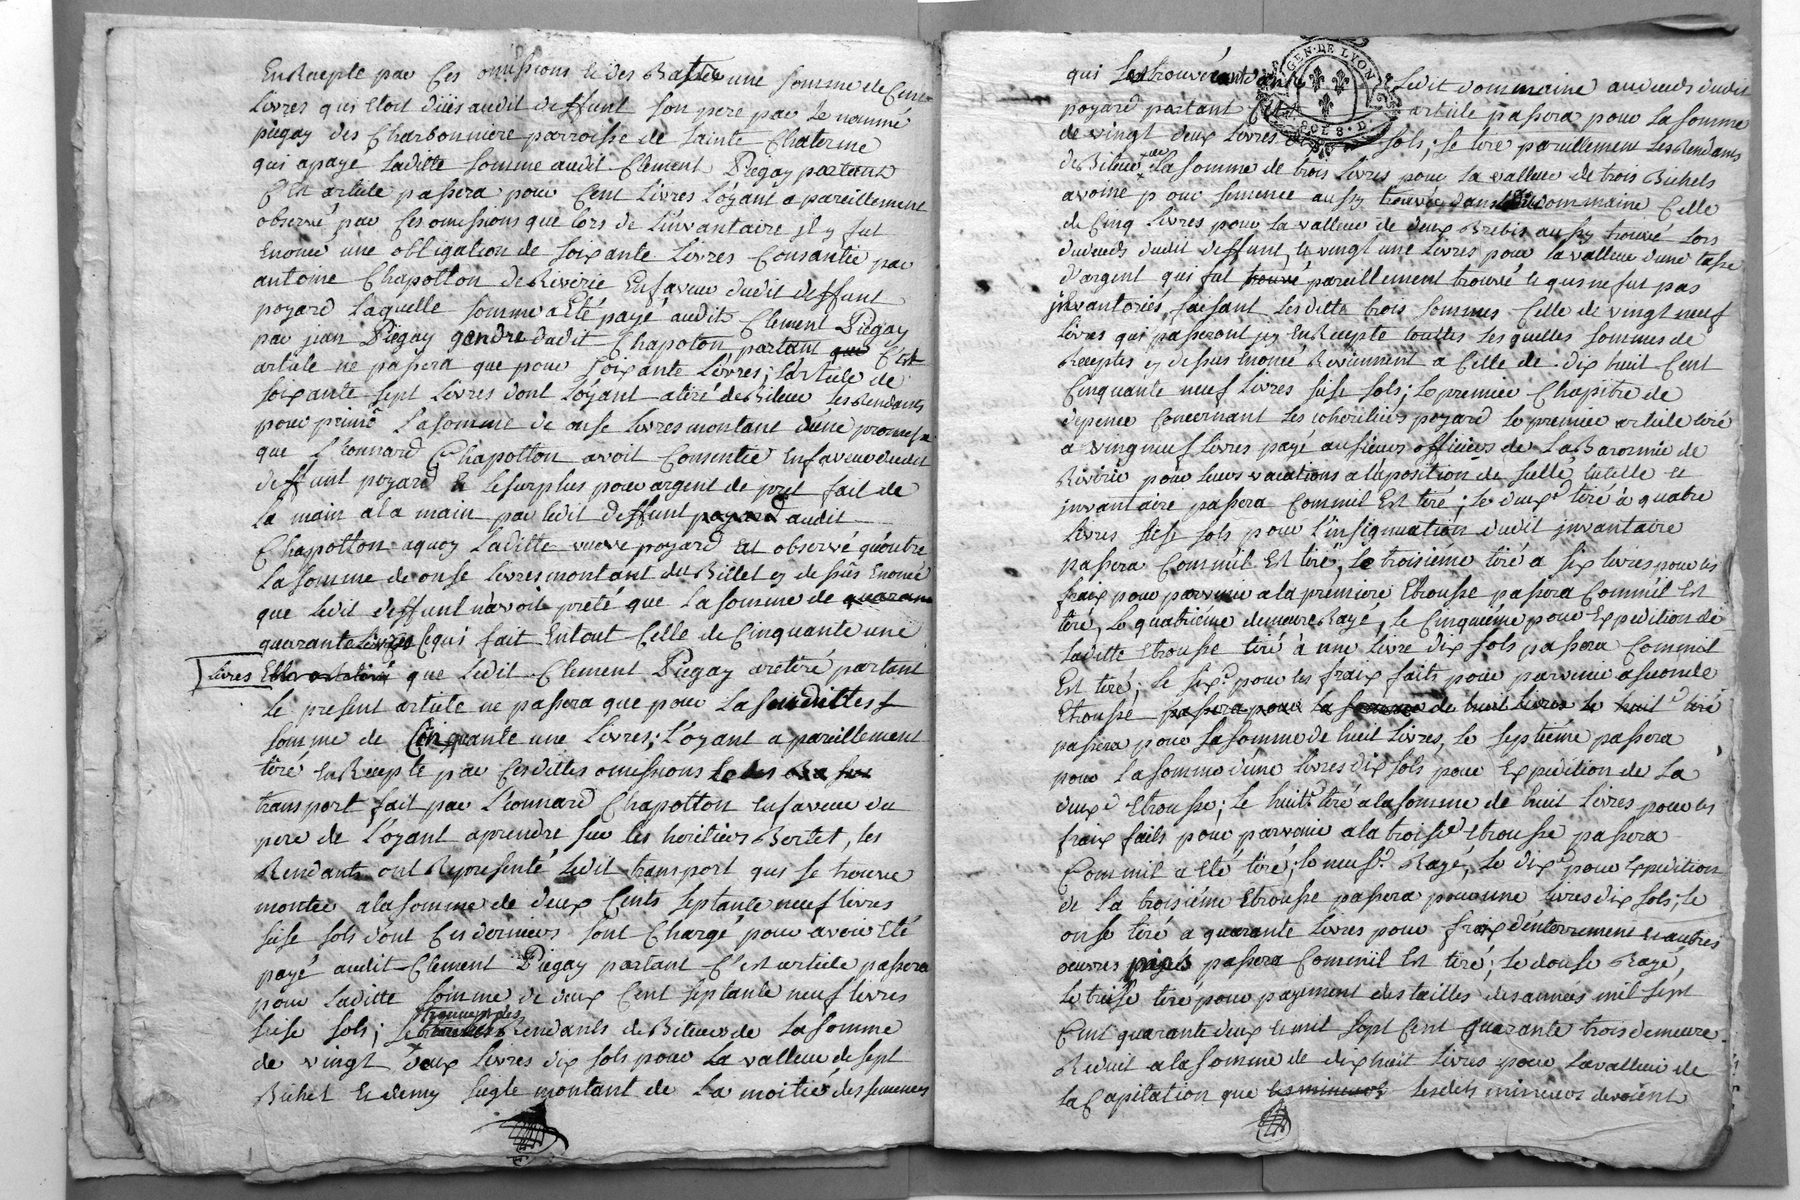 En Recepte par Ces omissions une somme de Cent
Livres qui Etoit düës audit deffunt son pere par le nommé
piegay des Charbonniere parroisse de Sainte Chaterine
qui a payé Laditte somme audit Clement Piegay partant
C'est article passera pour Cent Livres L'oyant a pareillement
observé par Ces omissions que lors de L'invantaire jl y fut
Enoncé une obligation de soixante Livres Consantie par
antoine Chapotton de Riverie En faveur dudit deffunt
poyard Laquelle somme a Eté payé audit Clement Piegay
par jean Piegay gendre dudit Chapoton partant que C'est
article ne passera que pour soixante Livres; L'article de
soixante sept Livres dont L'oyant a tiré les Rendants
pour primo La somme de onse Livres montant d'une promesse
que Leonnard Chapotton avoit Consentie En faveur dudit
deffunt poyard & le surplus pour argent de pret fait de
La main a la main par ledit deffunt poyard audit
Chapotton aquoy Laditte veuve poyard Est observé qu'outre
La somme de onse Livres montant du Billet cy dessûs Enoncé
que ledit deffunt n'avoit preté que La somme de quarante
quarante Livres Ce qui fait En tout Celle de Cinquante une
Livres que ledit Clement Piegay a retiré partant
le present article ne passera que pour La susdittes
somme de Cinquante une Livres; L'oyant a pareillement
tiré En Recepte par Cesdittes omissions
transport fait par Leonnard Chapotton En faveur du
pere de L'oyant a prendre sur les heritiers Bertet, les
Rendants ont Representé Ledit transport qui se trouve
monter a la somme de deux Cents septante neuf livres
seise sols dont Ces derniers sont Chargé pour avoir Eté
payé audit Clement Piegay partant C'est article passera
pour Laditte somme de deux Cent septante neuf livres
seise sols; Rendants de La somme
de vingt deux Livres dix sols pour La valleur de sept
Bichet Et demy seigle montant de La moitié des semences
qui trouvé Ledit dommaine au deceds dudit
poyard partant C'est article passera pour La somme
de vingt deux Livres sols; Le tiré pareillement Les Rendants
La somme de trois Livres pour La valleur de trois Bichets
avoine pour semence aussy trouvée dans Ledit dommaine Celle
de Cinq Livres pour La valleur de deux Brebis aussy trouvé Lors
du deceds dudit deffunt, & vingt une Livres pour La valleur d'une tasse
d'argent qui fut trouvé pareillement trouvé & qui ne fut pas
jnvantoriés, faisant Lesditte trois sommes Celle de vingt neuf
Livres qui passeront jcy En Recepte touttes Lesquelles sommes de
Receptes cy dessus Enoncé Reviennent a Celle de dix huit Cent
Cinquante neuf Livres seise sols; Le premier Chapitre de
depence Concernant Les coheritiers poyard le premier article tiré
a vingt neuf Livres payé au sieurs officiers de La Baronnie de
Riverie pour Leurs vacations a la position de sellé, tutelle et
jnvantaire passera Comm'il Est tiré; Le deuxe tiré à quatre
Livres seise sols pour l'insignuation dudit jnvantaire
passera Comm'il Est tiré, Le troisieme tiré a six livres pour les
fraix pour parvenir a la premiere Etrousse passera Comm'il Est
tiré, Le quatrième demeure Rayé, le Cinquième pour Expedition de
Laditte Etrousse tiré à une Livre dix sols passera Comm'il
Est tiré; Le sixe pour les fraix faits pour parvenir a seconde
Etrousse passera pour la somme de huit livres le huite tiré
passera pour La somme de huit Livres, Le septième passera
pour La somme d'une Livres dix sols pour Expedition de La
deuxe Etrousse; Le huite tiré a la somme de huit Livres pour les
fraix faits pour parvenir a la troise Etrousse passera
Comm'il a Eté tiré, Le neufe Rayé, Le dixe pour Expedition
de La troisième Etrousse passera pour une Livres dix sols; Le
onse tiré a quarante Livres pour fraix d'enterrement et autres
oeuvres passera Comm'il Est tiré; Le douse Rayé,
Le treise tiré pour payement des tailles des années mil sept
Cent quarante deux & mil sept Cent quarante trois demeure
Reduit a la somme de dix huit Livres pour La valleur de
La Capitation que les mineurs Lesdits mineurs devoient
GEN · DE LYON
SOLS · D